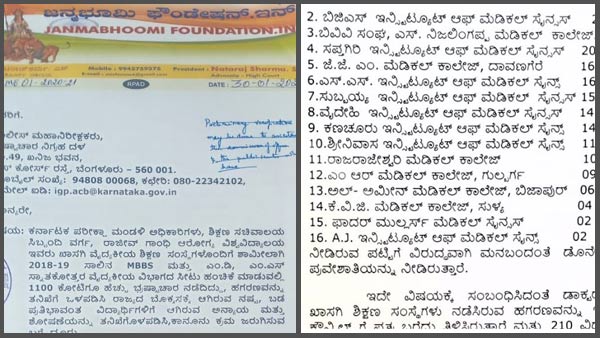 ಜನ್ಮಭೂಮಿ ಫೌಂಡೇಷನ್.ಇನ್
JANMABHOOMI FOUNDATION.IN
Mobile No. : 9942739375
President : Nataraj Sharma
Advocate - High Court
RPAD
DATE : 30-01-20
560 001.
ಮೊಬೈಲ್ ಸಂಖ್ಯೆ: 94808 00068, ಕಛೇರಿ: 080-22342102,
ಇಮೇಲ್ ಐಡಿ: igp.acb@karnataka.gov.in
ಮಾನ್ಯರೇ,
ವಿಷಯ: ಕರ್ನಾಟಕ ಪರೀಕ್ಷಾ ಮಂಡಳಿ ಅಧಿಕಾರಿಗಳು, ಶಿಕ್ಷಣ ಸಚಿವಾಲಯ
ಸಿಬ್ಬಂದಿ ವರ್ಗ, ರಾಜೀವ್ ಗಾಂಧಿ ಆರೋಗ್ಯ ವಿಶ್ವವಿದ್ಯಾಲಯ
ಇವರು ಖಾಸಗಿ ವೈದ್ಯಕೀಯ ಶಿಕ್ಷಣ ಸಂಸ್ಥೆಗಳೊಂದಿಗೆ ಶಾಮೀಲಾಗಿ
2018-19 ಸಾಲಿನ MBBS ಮತ್ತು ಎಂ.ಡಿ, ಎಂ.ಎಸ್
ಸ್ನಾತಕೋತ್ತರ ವೈದ್ಯಕೀಯ ವಿಭಾಗದ ಸೀಟು ಹಂಚಿಕೆ ಮಾಡುವಲ್ಲಿ
1100 ಕೋಟಿಗೂ ಹೆಚ್ಚು ಭ್ರಷ್ಟಾಚಾರ ನಡೆದಿದ್ದು, ಹಗರಣವನ್ನು
ತನಿಖೆಗೆ ಒಳಪಡಿಸಿ ರಾಜ್ಯದ ಬೊಕ್ಕಸಕ್ಕೆ ಆಗಿರುವ ನಷ್ಟ, ಬಡ
ಪ್ರತಿಭಾವಂತ ವಿದ್ಯಾರ್ಥಿಗಳಿಗೆ ಆಗಿರುವ ಅನ್ಯಾಯ ಮತ್ತು
ಶೋಷಣೆಯನ್ನು ತನಿಖೆಗೊಳಪಡಿಸಿ,ಕಾನೂನು ಕ್ರಮ ಜರುಗಿಸುವ
2. ಬಿಜಿಎಸ್ ಇನ್ಸ್ಟಿಟ್ಯೂಟ್ ಆಫ್ ಮೆಡಿಕಲ್ ಸೈನ್ಸಸ್ 2
3.ಬಿವಿವಿ ಸಂಘ, ಎಸ್. ನಿಜಲಿಂಗಪ್ಪ ಮೆಡಿಕಲ್ ಕಾಲೇಜ್
4. ಸಪ್ತಗಿರಿ ಇನ್ಸ್ಟಿಟ್ಯೂಟ್ ಆಫ್ ಮೆಡಿಕಲ್ ಸೈನ್ಸಸ್ 20
5. ಜೆ.ಜೆ. ಎಂ. ಮೆಡಿಕಲ್ ಕಾಲೇಜ್, ದಾವಣಗೆರೆ 16
6.ಎಸ್.ಎಸ್. ಇನ್ಸ್ಟಿಟ್ಯೂಟ್ ಆಫ್ ಮೆಡಿಕಲ್ ಸೈನ್ಸ್ 16
7.ಸುಬ್ಬಯ್ಯ ಇನ್ಸ್ಟಿಟ್ಯೂಟ್ ಆಫ್ ಮೆಡಿಕಲ್ ಸೈನ್ಸಸ್ 15
8.ವೈದೇಹಿ ಇನ್ಸ್ಟಿಟ್ಯೂಟ್ ಆಫ್ ಮೆಡಿಕಲ್ ಸೈನ್ಸ್ 14
9. ಕಣಚೂರು ಇನ್ಸ್ಟಿಟ್ಯೂಟ್ ಆಫ್ ಮೆಡಿಕಲ್ ಸೈನ್ಸ್ 14
10.ಶ್ರೀನಿವಾಸ ಇನ್ಸ್ಟಿಟ್ಯೂಟ್ ಆಫ್ ಮೆಡಿಕಲ್ ಸೈನ್ಸ್ 1
11.ರಾಜರಾಜೇಶ್ವರಿ ಮೆಡಿಕಲ್ ಕಾಲೇಜ್ 10
12. ಎಂ ಆರ್ ಮೆಡಿಕಲ್ ಕಾಲೇಜ್, ಗುಲ್ಬರ್ಗ 09
13.ಅಲ್- ಅಮೀನ್ ಮೆಡಿಕಲ್ ಕಾಲೇಜ್, ಬಿಜಾಪುರ್ 06
14.ಕೆ.ವಿ.ಜಿ. ಮೆಡಿಕಲ್ ಕಾಲೇಜ್, ಸುಳ್ಯ 04
15. ಫಾದರ್ ಮುಲ್ಲರ್ಸ್ ಮೆಡಿಕಲ್ ಸೈನ್ಸಸ್ 02
16. A.J. ಇನ್ಸ್ಟಿಟ್ಯೂಟ್ ಆಫ್ ಮೆಡಿಕಲ್ ಸೈನ್ಸ್ 02
ನೀಡಿರುವ ಪಟ್ಟಿಗೆ ವಿರುದ್ಧವಾಗಿ ಮನಬಂದಂತೆ ಡೊನೇ
ಪ್ರವೇಶಾತಿಯನ್ನು ನೀಡಿರುತ್ತಾರೆ.
ಇದೇ ವಿಷಯಕ್ಕೆ ಸಂಬಂಧಿಸಿದಂತೆ ಡಾಕ್ಟ
ಖಾಸಗಿ ಶಿಕ್ಷಣ ಸಂಸ್ಥೆಗಳು ನಡೆಸಿರುವ ಹಗರಣವನ್ನು